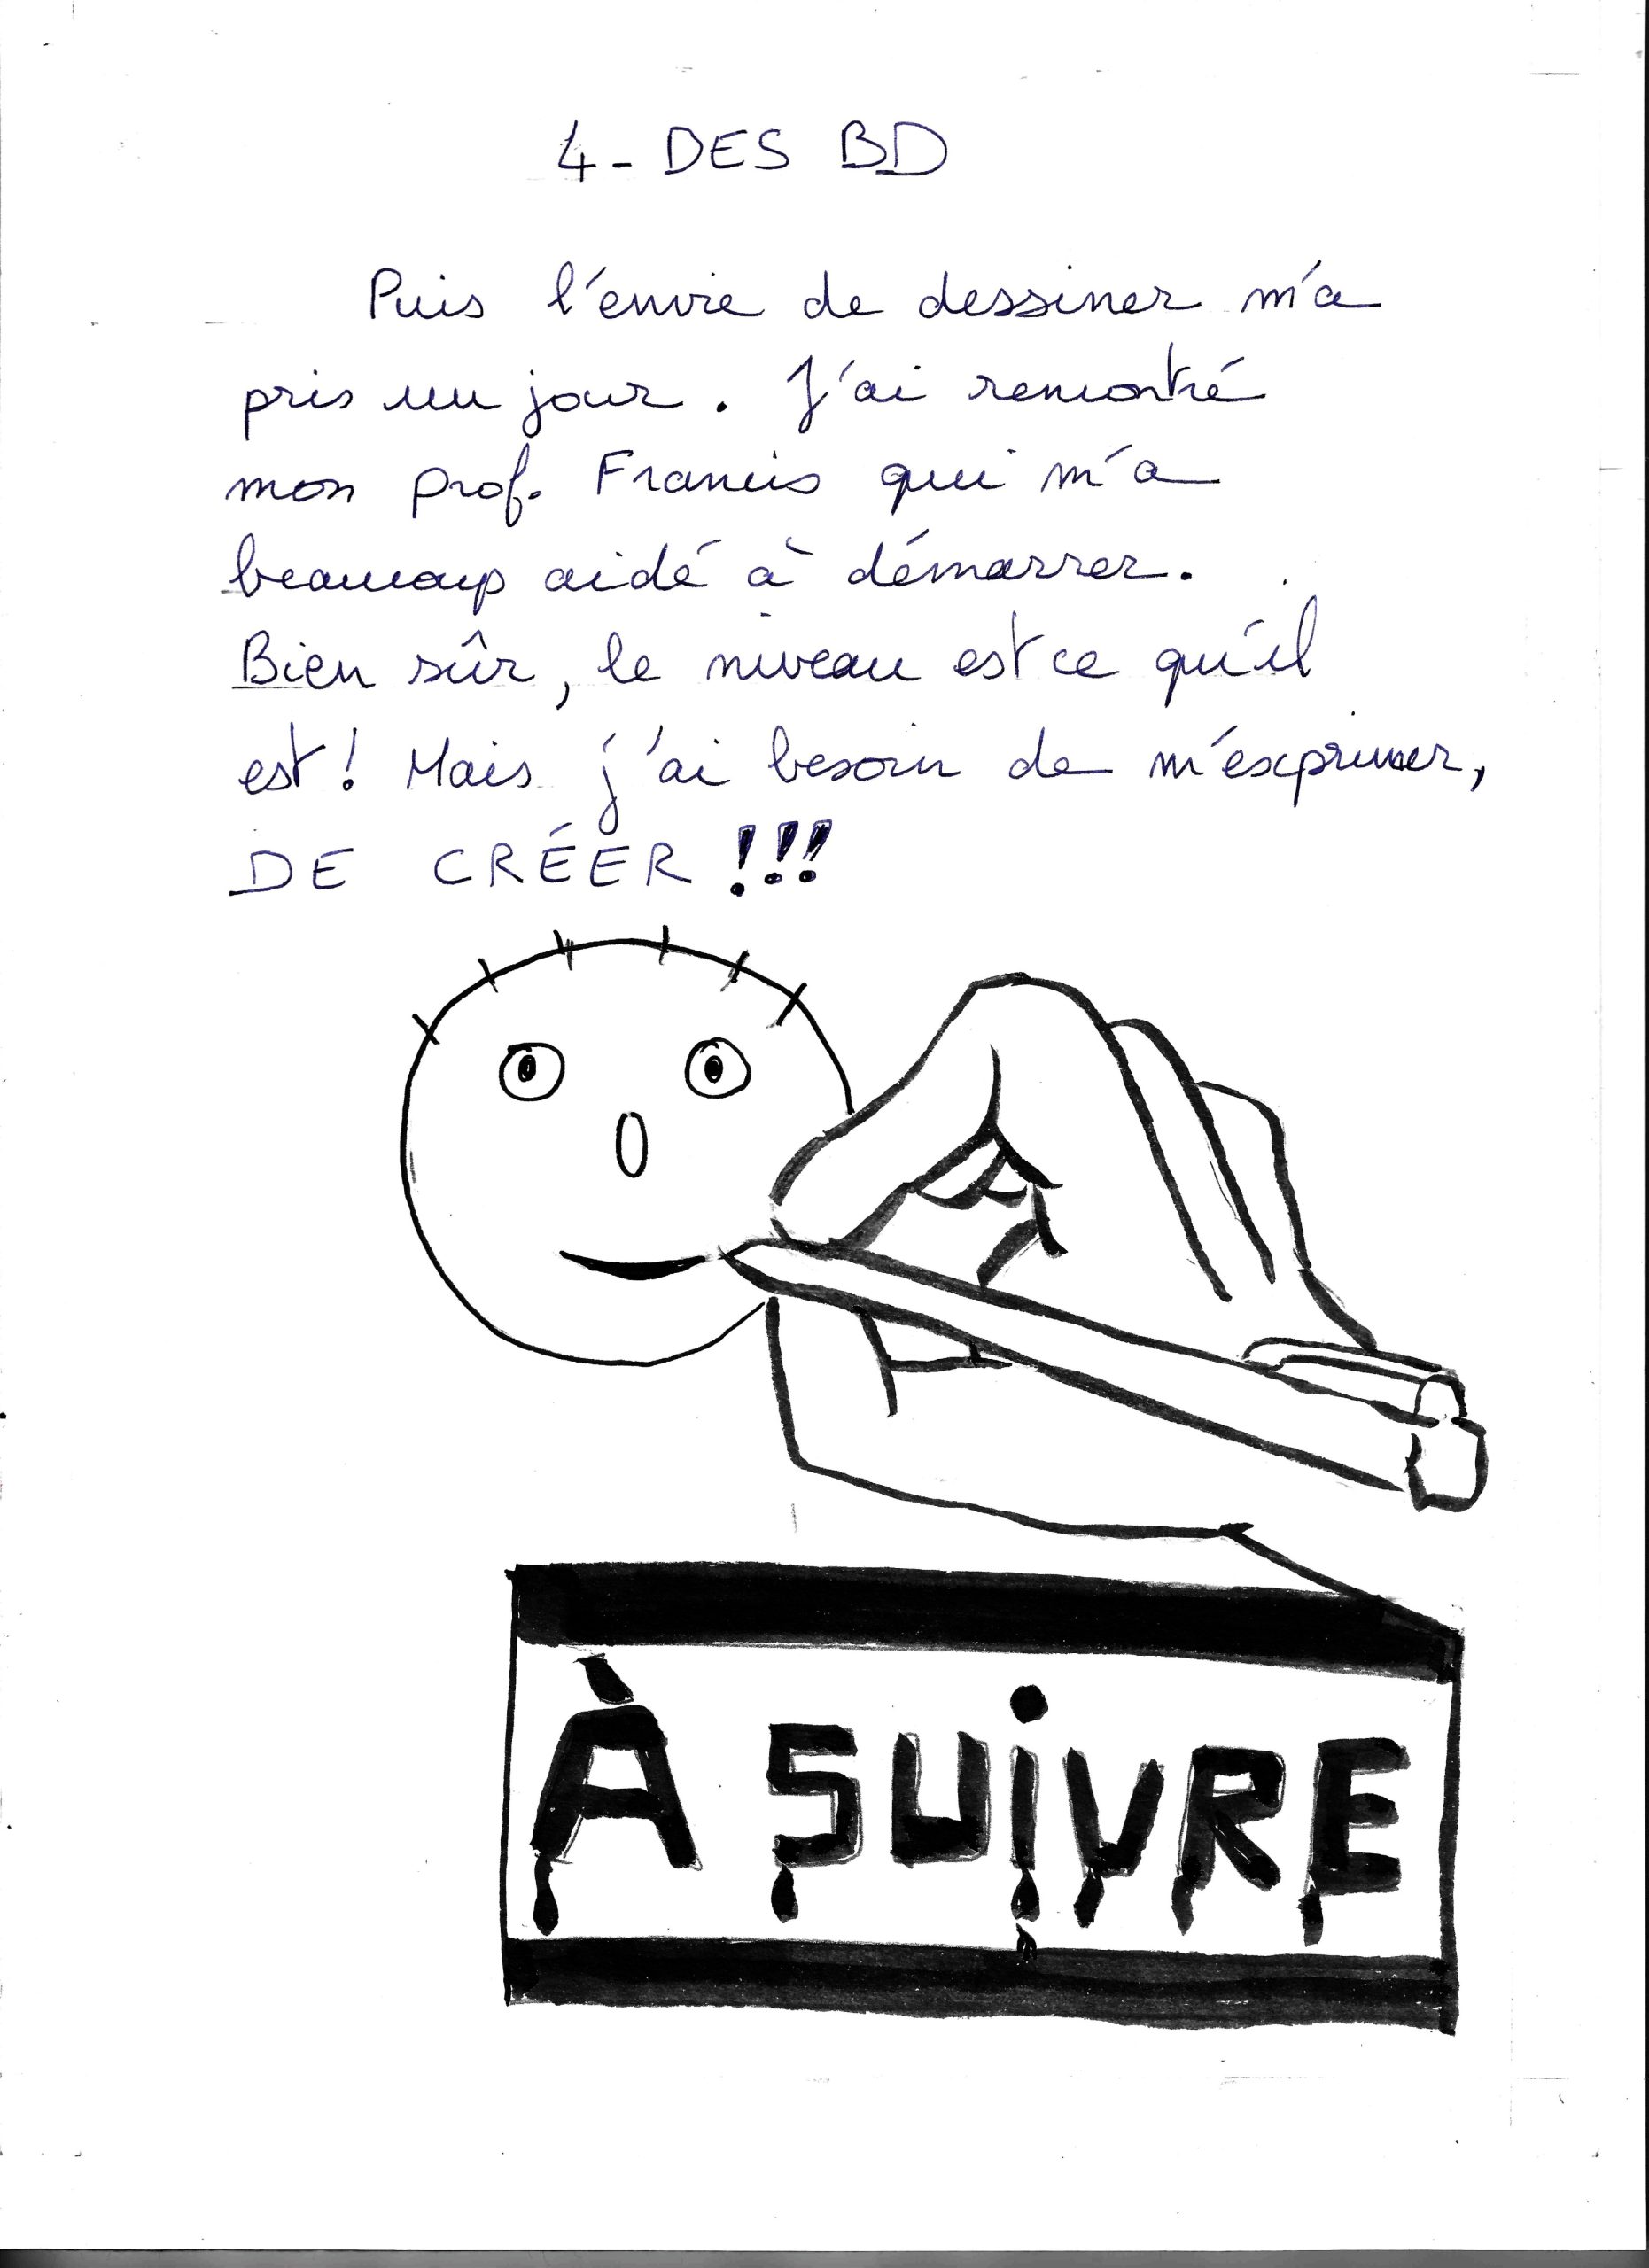 4- DES BD
Puis l'envie de dessiner m'a
pris un jour. J'ai rencontré
mon prof. Francis qui m'a
beaucoup aidé à démarrer.
Bien sûr, le niveau est ce qu'il
est! Mais j'ai besoin de m'exprimer,
DE CRÉER !!!
À SUiVRE